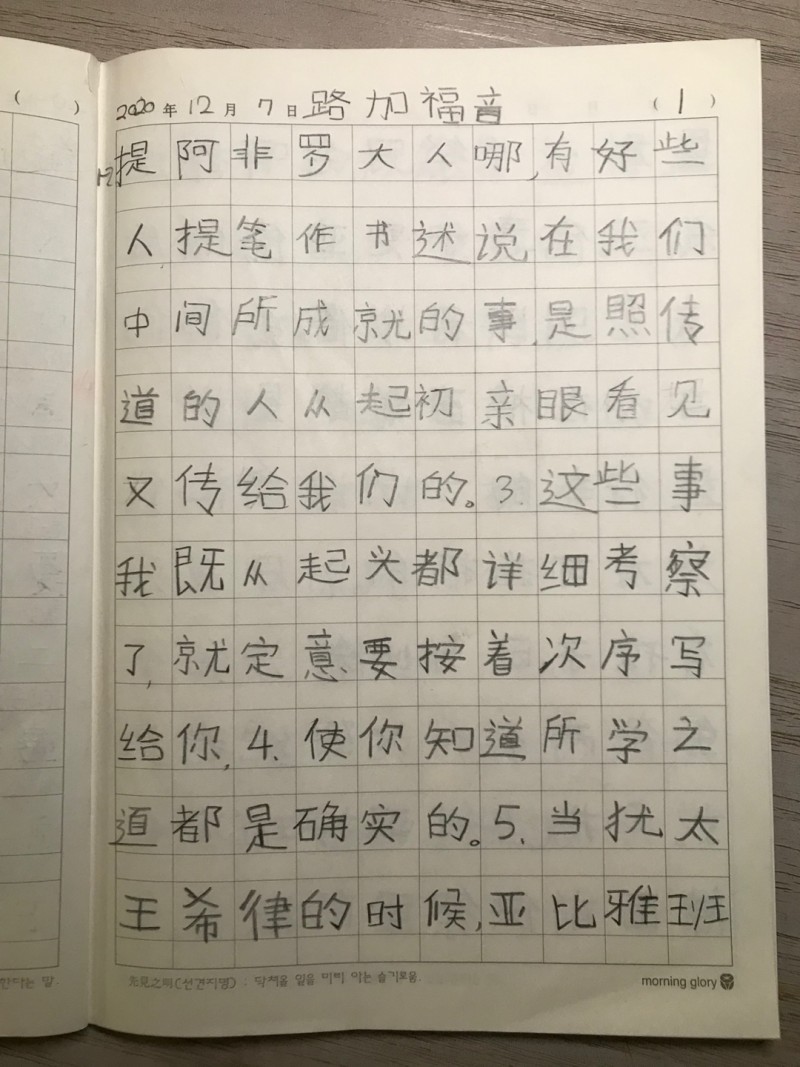 ( )
2020 年 12 月 7 日 路加福音 ( 1 )
1-2 提阿非罗大人哪,有好些
人提笔作书述说在我们
中间所成就的事,是照传
道的人从起初亲眼看见
又传给我们的。3.这些事
我既从起头都详细考察
了,就定意要按着次序写
给你,4.使你知道所学之
道都是确实的。5.当犹太
王希律的时候,亚比雅班
한다는 말.
先見之明(선견지명) : 닥쳐올 일을 미리 아는 슬기로움.
morning glory